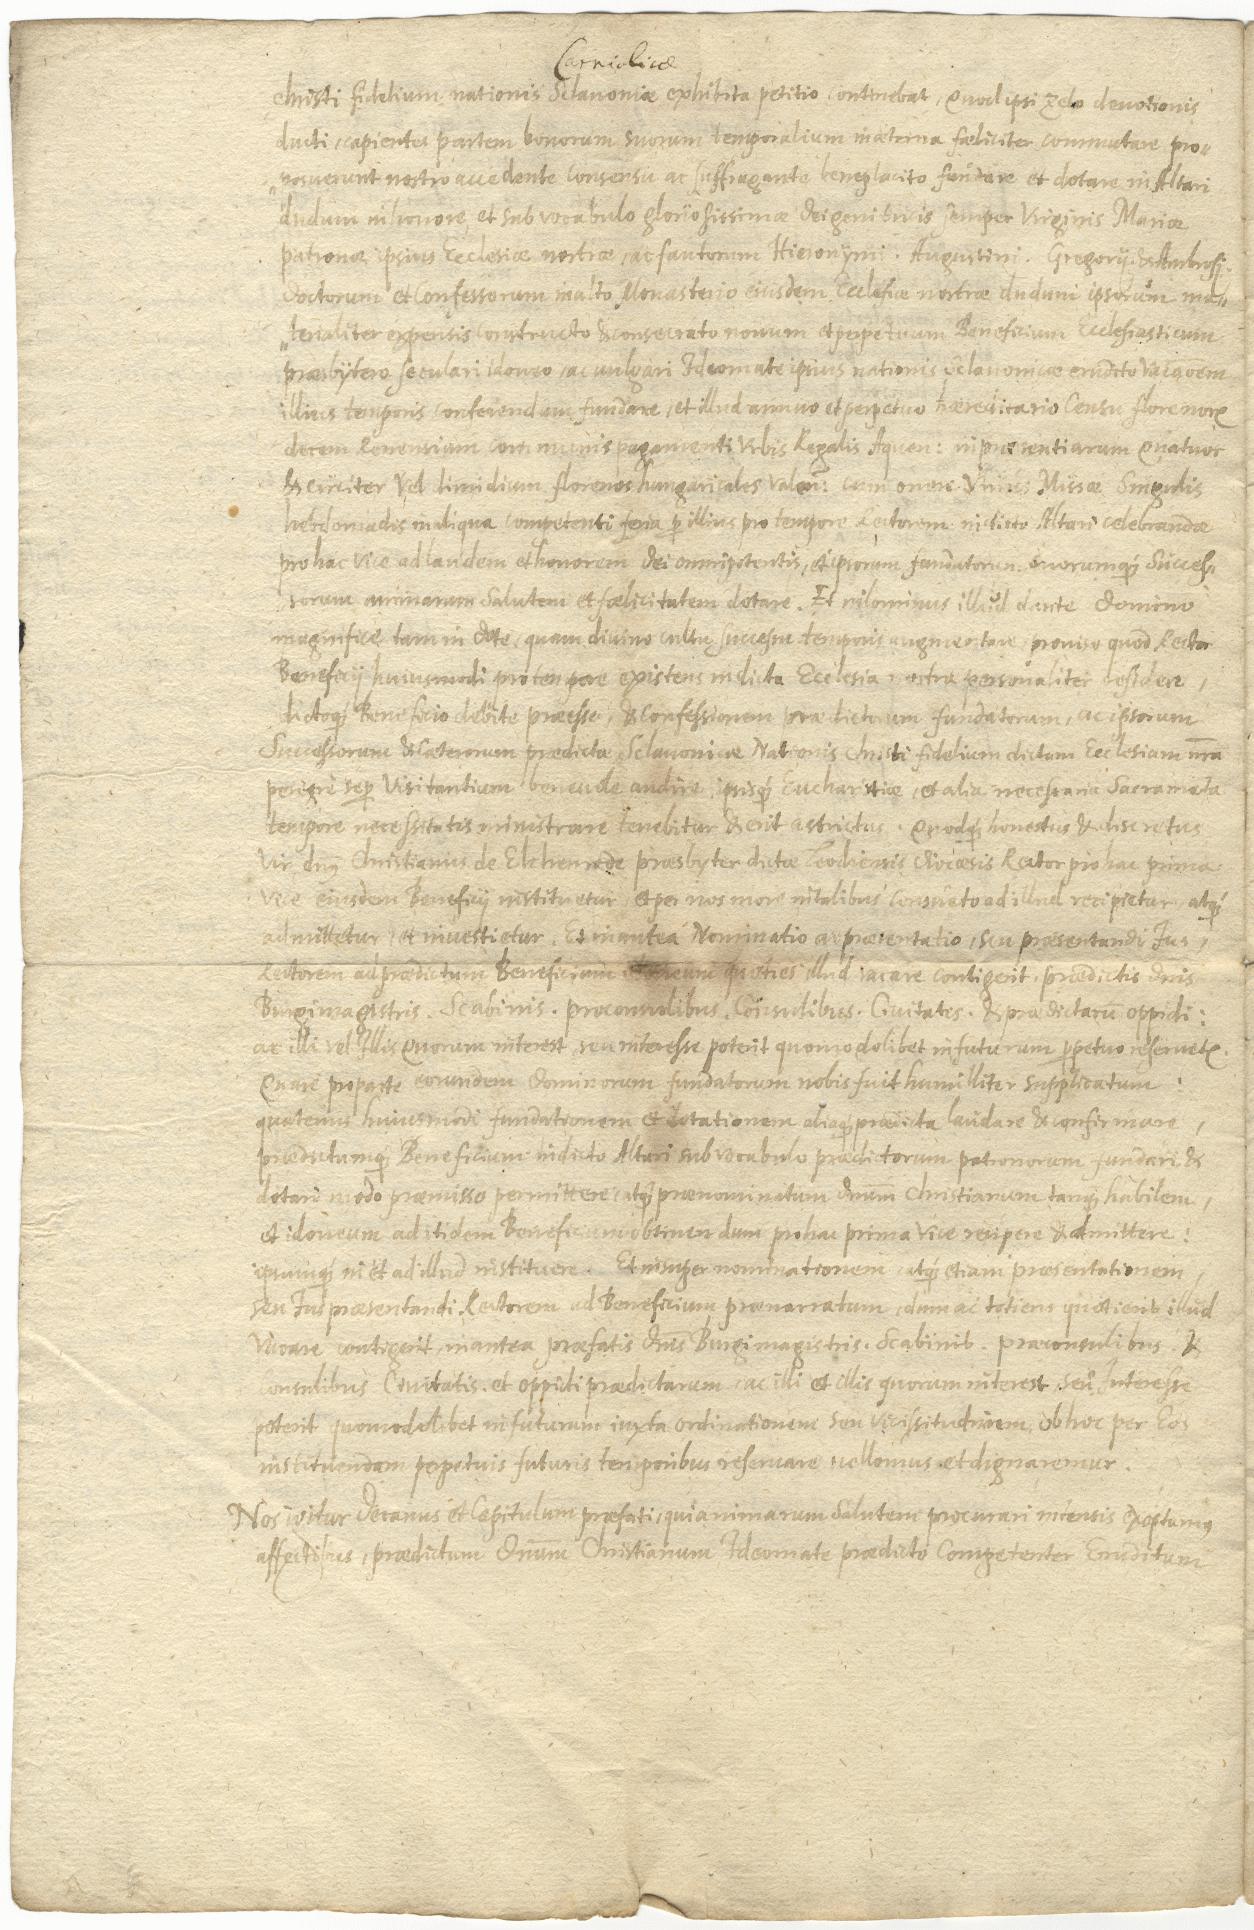 Carniolicæ
christi fidelium nationis Sclauoniæ exhibita petitio continebat, Quod ipsi zelo deuotionis
ducti, capientes partem bonorum suorum temporalium in æterna fæliciter commutare pro„
„posuerunt nostro accedente Consensu ac suffragante beneplacito fundare et dotare in Altari
dudum in honore, et sub vocabulo gloriosissimæ dei genitricis semper Virginis Mariæ
patronæ ipsius Ecclesiæ nostræ, ac sanctorum Hieronymi. Augustini. Gregorij. & Ambrosij.
doctorum et Confessorum in alto Monasterio eiusdem Ecclesiæ nostræ dudum ipsorum ma„
„terialiter expensis constructo & consecrato nouum et perpetuum Beneficium Ecclesiasticum
præsbÿtero seculari idoneo, ac uulgari Ideomate ipsius nationis Sclauonicæ erudito
illius temporis conferendum fundare, et illud annuo et perpetuo hæreditario Censu florenorꝝ
decem Renensium communis pagamenti Vrbis Regalis Aquen: in præsentiarum Quatuor
& circiter vel dimidium florenos hungaricales valen: cum onere Vnius Missæ Singulis
hebdomadis in aliqua competenti feria ꝑ illius pro tempore Rectorem in dicto Altari celebrandæ
pro hac vice ad laudem et honorem dei omnipotentis, et ipsorum fundatorum suorumq́ Succes„
sorum animarum salutem et fælicitatem dotare. Et nilominus illud dante domino
magnifice tam in dote, quam diuino cultu successu temporis augmentare, prouiso quod Rector
Beneficij huiusmodi pro tempore existens in dicta Ecclesia nostra personaliter residere,
dictoq́ Beneficio debite præesse, & Confessionem prædictorum fundatorum, ac ipsorum
Successorum & Cæterorum prædictæ Sclauonicæ Nationis christi fidelium dictam Ecclesiam nr̃a
peregre sep̃ visitantium beneuole audire, ipisq́ Eucharistiæ, et alia necessaria Sacramẽta
tempore necessitatis ministrare tenebitur & erit astrictus. Quodq́ honestus & discretus
Vir dn̄s Christianus de Elchenrode præsbyter dictæ Leodiensis diocæsis Rector pro hac prima
vice eiusdem Beneficij instituetur, et per nos more in talibus consueto ad illud recipietur, atq́
admittetur, et inuestietur. Et in antea Nominatio ac præsentatio, seu præsentandi Jus,
Rectorem ad prædictum Beneficium quoties illud vacare contigerit, prædictis dn̄is
Burgimagistris. Scabinis. proconsulibus. Consulibus. Ciuitatis. & prædictarũ oppidi:
ac illi vel Illis Quorum interest, seu interesse poterit quomodolibet in futurum ꝑpetuo reseruetꝝ.
Quare pro parte eorundem dominorum fundatorum nobis fuit humiliter supplicatum :
quatenus huiusmodi fundationem et dotationem aliaq́ prædicta laudare & confirmare,
prædictumq́ Beneficium in dicto Altari sub vocabulo prædictorum patronorum fundari &
dotari modo præmisso permittere, atq́ prænominatum dn̄um Christianum tanq́ habilem,
et idoneum ad itidem Beneficium obtinendum pro hac prima vice recipere & admittere :
ipsumq́ in et ad illud instituere. Et insuper nominationem, atq́ etiam præsentationem,
seu Jus præsentandi Rectorem ad Beneficium prænarratum, dum ac totiens quotiens illud
Vacare contigerit, in antea præfatis dn̄is Burgimagistris. Scabinis. præconsulibus. &
Consulibus Ciuitatis. et oppidi prædictarum, ac illi et illis quorum interest, seu Interesse
poterit quomodolibet in futurum iuxta ordinationem seu vicissitudinem, ob hoc per Eos
instituendam perpetuis futuris temporibus reseruare uellemus, et dignaremur.
Nos igitur Decanus et Capitulum præfati, qui animarum salutem procurari intensis exoptamus
affectibus, prædictum dn̄um Christianum Ideomate prædicto Competenter Eruditum